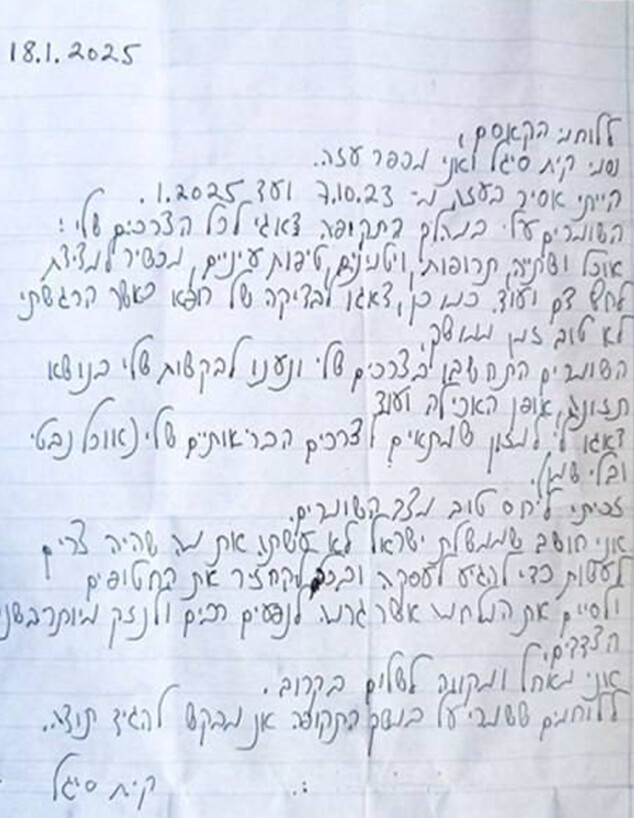 18.1.2025
ללוחמי הקאסם,
שמי קית סיגל ואני מכפר עזה.
הייתי אסיר בעזה מ- 7.10.23 ועד 1.2025.
השומרים עלי במהלך התקופה דאגו לכל הצרכים שלי:
אוכל ושתייה, תרופות, ויטמינים, טיפות עיניים, מכשיר למדידת
לחץ דם ועוד. כמו כן, דאגו לבדיקה של רופא כאשר הרגשתי
לא טוב זמן ממושך.
השומרים התחשבו בצרכים שלי ונענו לבקשות שלי בנושא
תזונה, אופן האכילה ועוד
דאגו לי למזון שמתאים לצרכים הבריאותיים שלי (אוכל נבטי
ובלי שמן).
זכיתי ליחס טוב מצד השומרים.
אני חושב שממשלת ישראל לא עשתה את מה שהיה צריך
לעשות כדי להגיע לעסקה ובכך להחזיר את החטופים
ולסיים את המלחמה אשר גרמה לנפגעים רבים ולנזק מיותר בשני
הצדדים.
אני מאחל ומקווה לשלום בקרוב.
ללוחמים ששמרו עלי במשך התקופה אני מבקש להגיד תודה.
קית סיגל